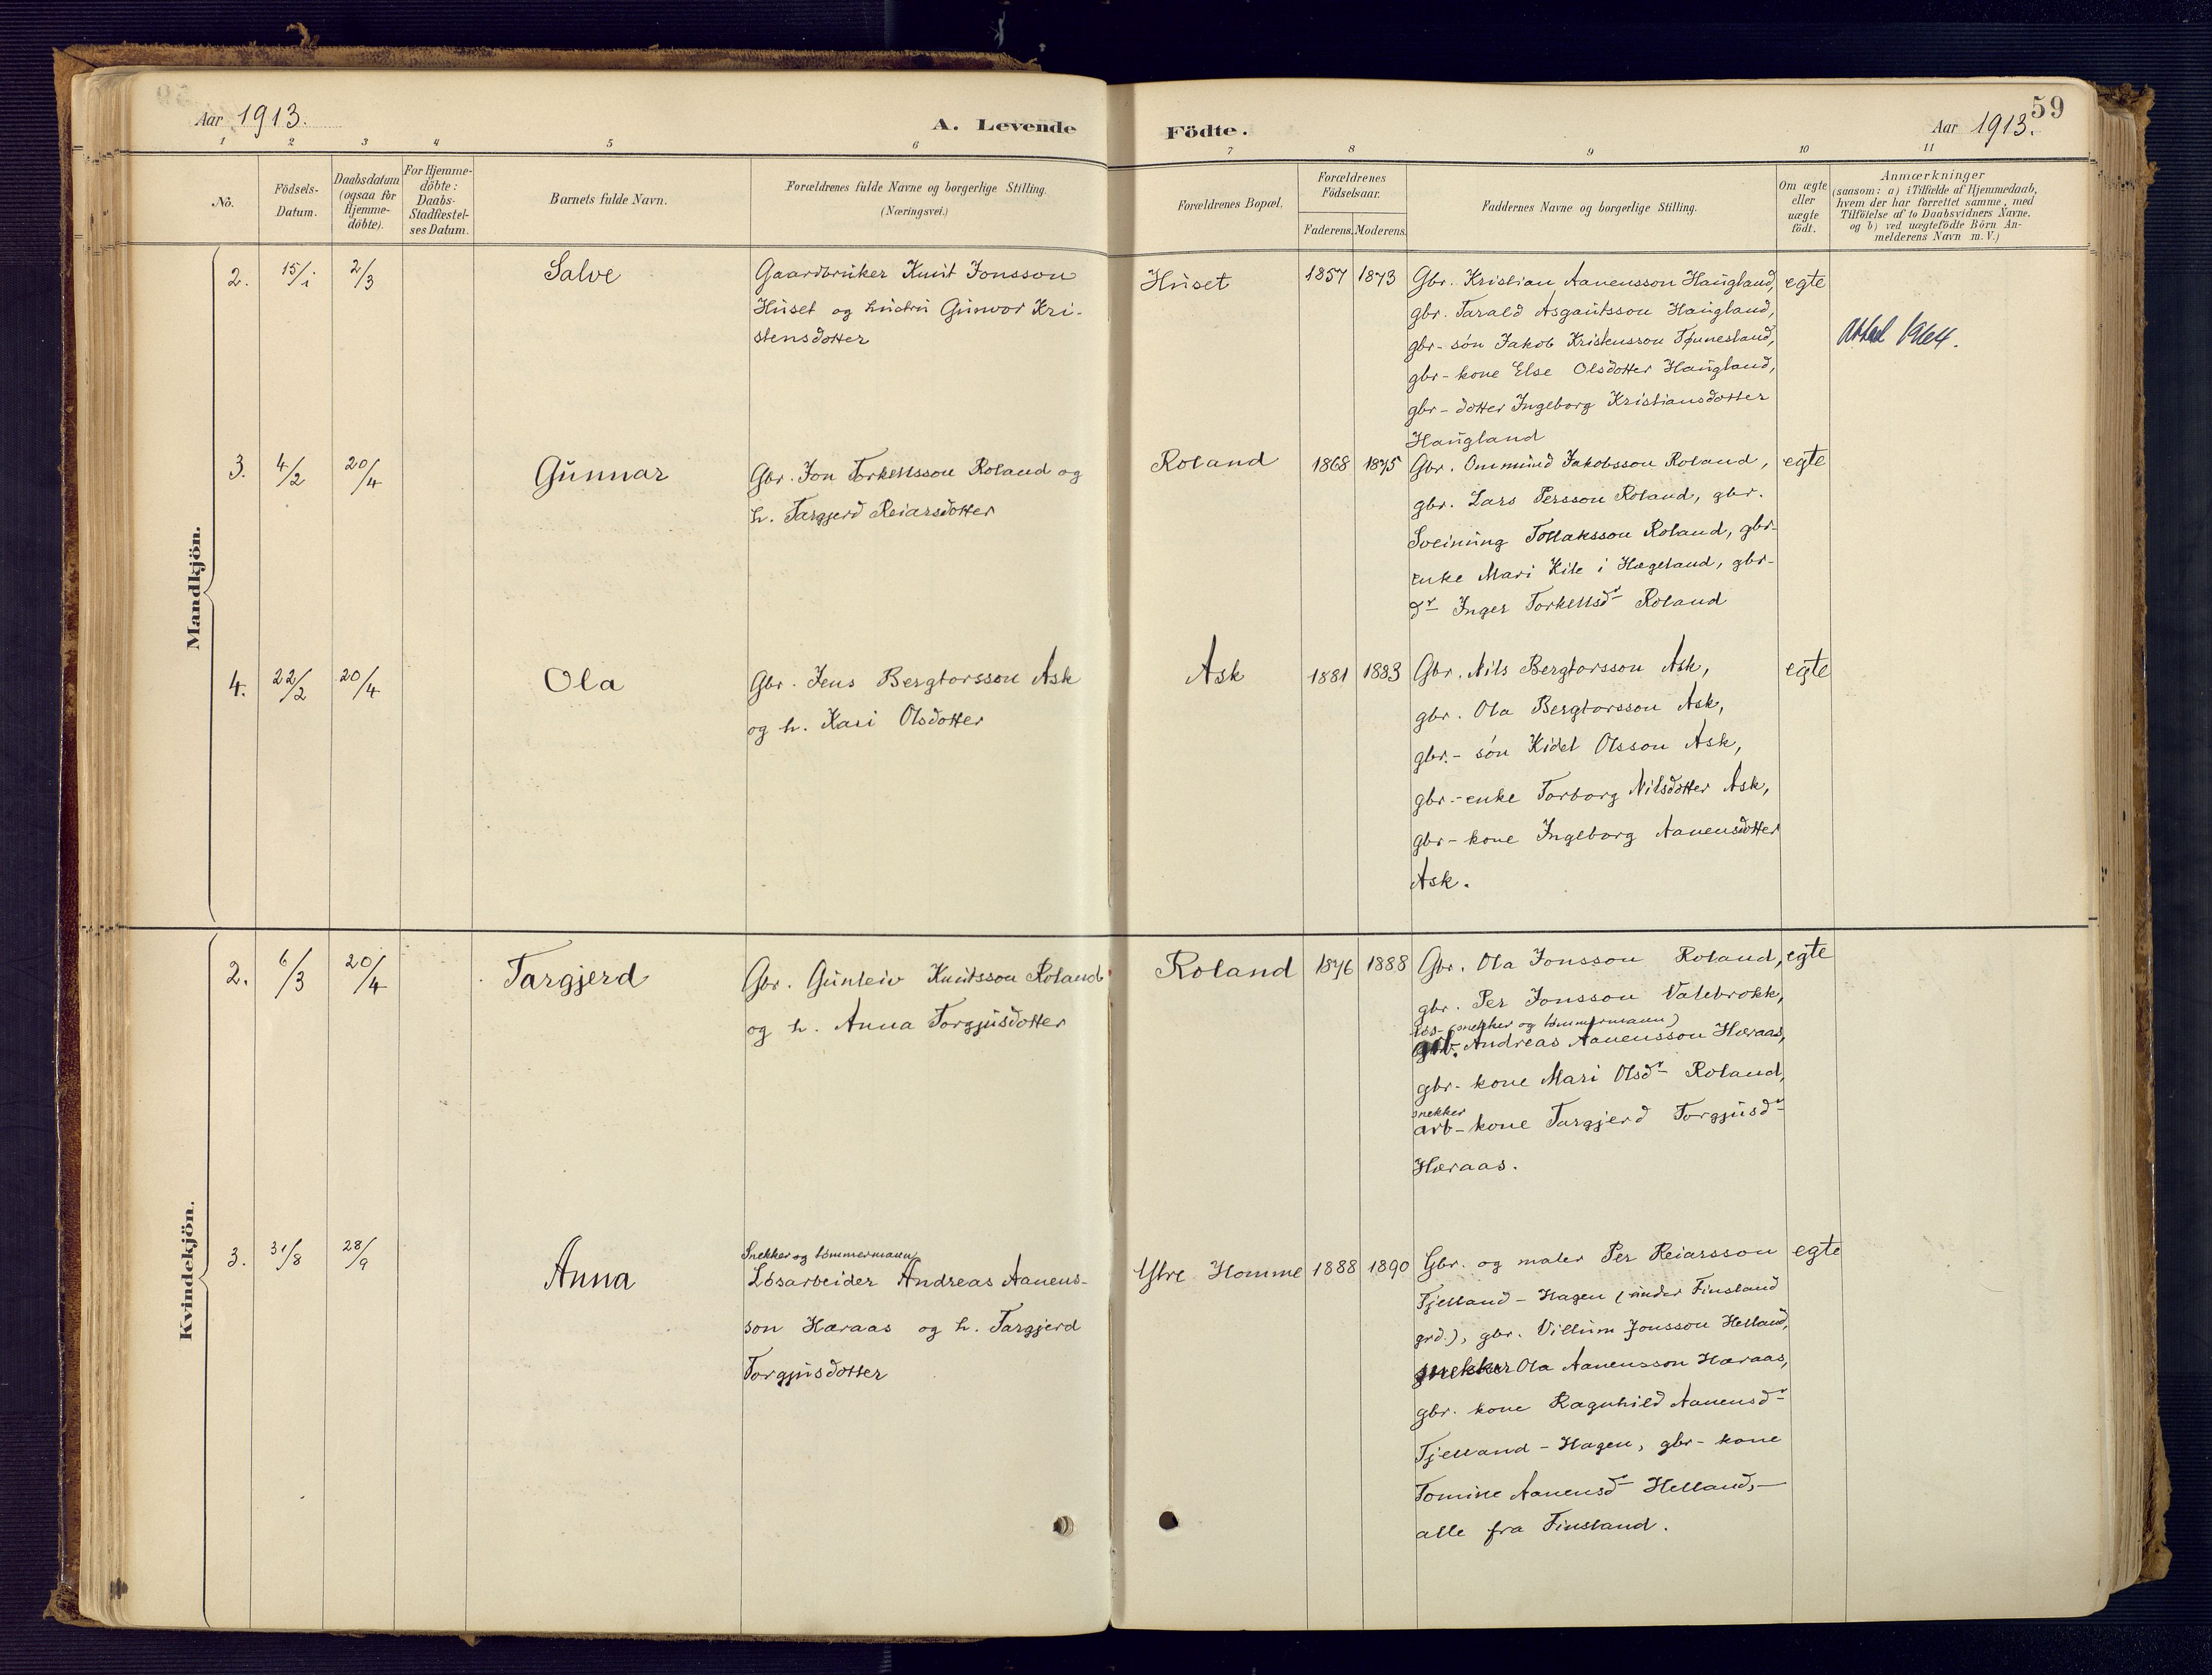 59
Aar 1913.
A. Levende Födte.
Aar 1913.
1 2 3 4 5 6 7 8 9 10 11
No.
Födsels-
Datum.
Daabsdatum
(ogsaa for
Hjemme-
döbte).
For Hjemme-
döbte:
Daabs-
Stadfæstel-
ses Datum.
Barnets fulde Navn.
Forældrenes fulde Navne og borgerlige Stilling.
(Næringsvei.)
Forældrenes Bopæl.
Forældrenes
Födselsaar.
Faderens. Moderens.
Faddernes Navne og borgerlige Stilling.
Om ægte
eller
uægte
födt.
Anmærkninger
(saasom: a) i Tilfælde af Hjemmedaab,
hvem der har forrettet samme, med
Tilföielse af to Daabsvidners Navne.
og b) ved uægtefödte Börn An-
melderens Navn m. V.)
Mandkjön.
2. 15/1 2/3 Salve
Gaardbruker Knut Jonsson
Huset og hustru Gunvor Kri-
stensdotter
Huset 1857 1873
Gbr. Kristian Aanensson Haugland,
gbr. Tarald Asgautsson Haugland,
gbr-søn Jakob Kristensson Tønnesland,
gbr-kone Else Olsdotter Haugland,
gbr-dotter Ingeborg Kristiansdotter
Haugland
egte
Attest 1964.
3. 4/2 20/4 Gunnar
Gbr. Jon Torkellsson Roland og
h. Targjerd Reiarsdotter
Roland 1868 1875
Gbr. Ommund Jakobsson Roland,
gbr. Lars Persson Roland, gbr.
Sveinung Tollaksson Roland, gbr-
enke Mari Kile i Hægeland, gbr-
dr Inger Torkellsdr Roland
egte
4. 22/2 20/4 Ola
Gbr. Jens Bergtorsson Ask
og h. Kari Olsdotter
Ask 1881 1883
Gbr. Nils Bergtorsson Ask,
gbr. Ola Bergtorsson Ask,
gbr.-søn Kidel Olsson Ask,
gbr.-enke Torborg Nilsdotter Ask,
gbr-kone Ingeborg Aanensdotter
Ask.
egte
Kvindekjön.
2. 6/3 20/4 Targjerd
Gbr. Gunleiv Knutsson Roland
og h. Anna Torgjusdotter
Roland 1876 1888
Gbr. Ola Jonsson Roland,
gbr. Per Jonsson Valebrokk,
løs- (snekker og tømmermann)
arb. Andreas Aanensson Høraas,
gbr-kone Mari Olsdr Roland,
snekker
arb-kone Targjerd Torgjusdr
Høraas.
egte
3. 31/8 28/9 Anna
Snekker og tømmermann
Løsarbeider Andreas Aanens-
son Høraas og h. Targjerd
Torgjusdotter
Ytre Homme 1888 1890
Gbr. og maler Per Reiarsson
Fjelland-Hagen (under Finsland
grd.), gbr. Villum Jonsson Helland,
snekker Ola Aanensson Høraas,
gbr. kone Ragnhild Aanensdr
Fjelland-Hagen, gbr-kone
Tomine Aanensdr Helland,-
alle fra Finsland.
egte